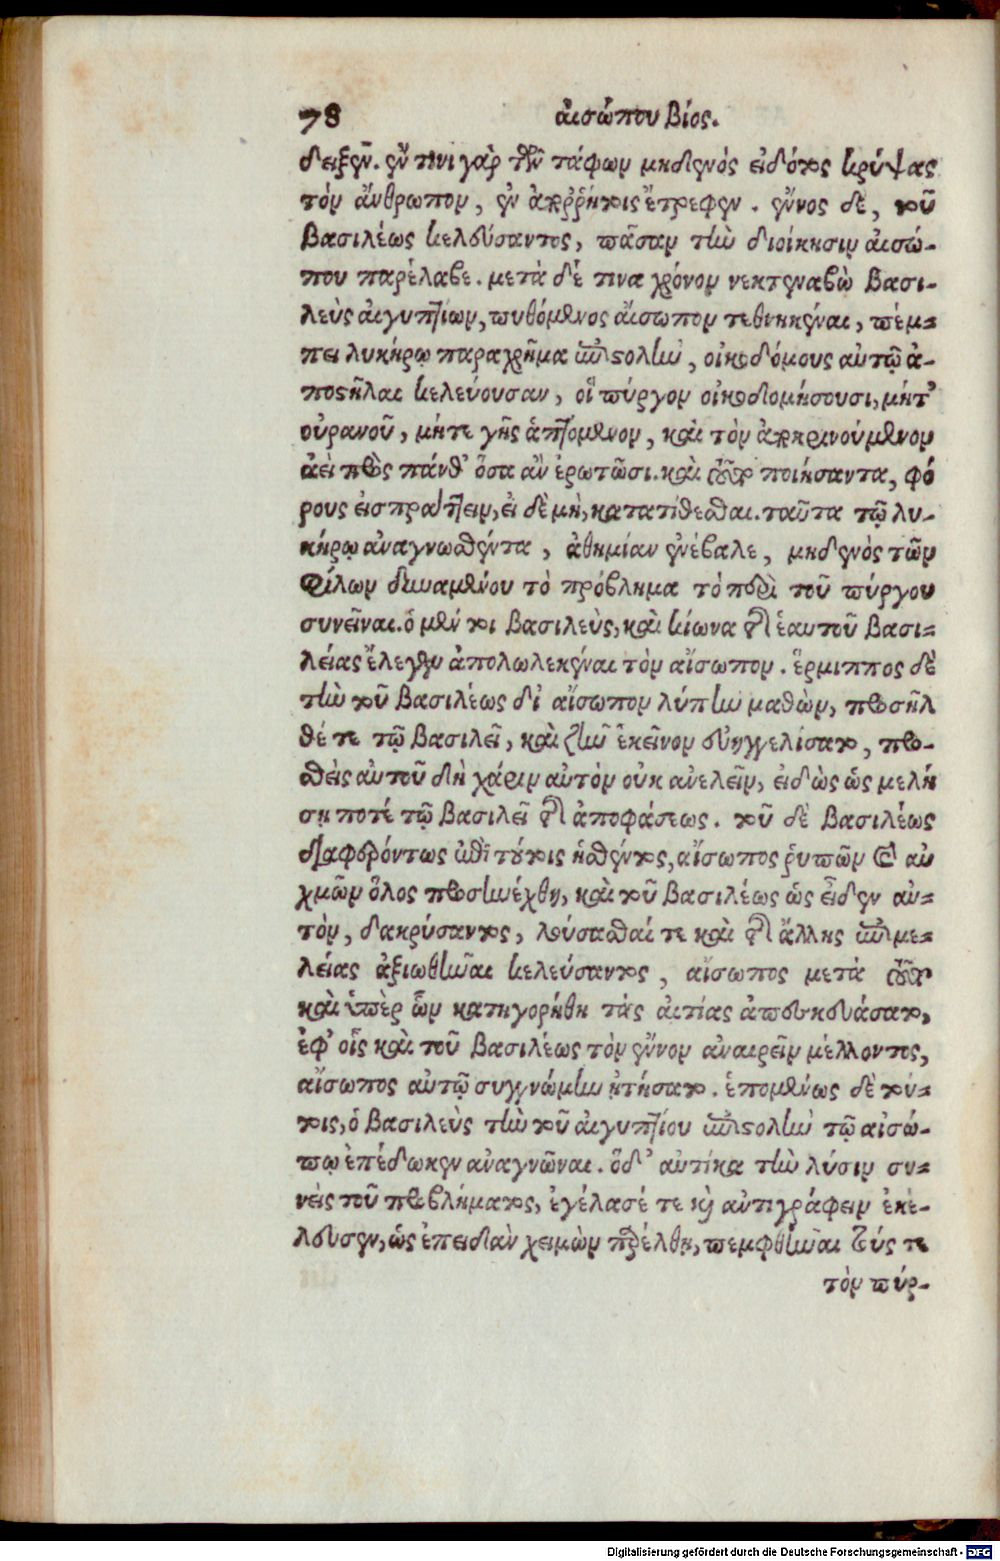 78 αἰσώπου βίος.
δειξεν. ἐν τινι γὰρ τῶν τάφων μηδενὸς εἰδότος κρύψας
τὸν ἄνθρωπον, ἐν ἀποῤῥήτοις ἔτρεφεν. ἔννος δὲ, τοῦ
βασιλέως κελεύσαντος, πᾶσαν τὴν διοίκησιν αἰσώ-
που παρέλαβε. μετὰ δέ τινα χρόνον νεκτεναβὼ βασι-
λεὺς αἰγυπτίων, πυθόμενος αἴσωπον τεθνηκέναι, πέμ-
πει λυκήρῳ παραχρῆμα ἐπιστολὴν, οἰκοδόμους αὐτῷ ἀ-
ποστῆλαι κελεύουσαν, οἳ πύργον οἰκοδομήσουσι, μήτ'
οὐρανοῦ, μήτε γῆς ἁπτόμενον, καὶ τὸν ἀποκρινούμενον
ἀεὶ πρὸς πάνθ' ὅσα ἂν ἐρωτῶσι. καὶ τοῦτο ποιήσαντα, φό
ρους εἰσπράττειν, εἰ δὲ μὴ, κατατίθεσθαι. ταῦτα τῷ λυ-
κήρῳ ἀναγνωσθέντα, ἀθημίαν ἐνέβαλε, μηδενὸς τῶν
φίλων δυναμένου τὸ πρόβλημα τὸ περὶ τοῦ πύργου
συνεῖναι. ὁ μέν τοι βασιλεὺς, καὶ κίονα τῆς ἑαυτοῦ βασι-
λείας ἔλεγεν ἀπολωλεκέναι τὸν αἴσωπον. ἕρμιππος δὲ
τὴν τοῦ βασιλέως δι' αἴσωπον λύπην μαθὼν, προσῆλ
θέ τε τῷ βασιλεῖ, καὶ ζῆν ἐκεῖνον εὐηγγελίσατο, προ-
σθεὶς αὐτοῦ δὴ χάριν αὐτὸν οὐκ ἀνελεῖν, εἰδὼς ὡς μελή
σῃ ποτέ τῷ βασιλεῖ τῆς ἀποφάσεως. τοῦ δὲ βασιλέως
διαφερόντως ἐπὶ τούτοις ἡσθέντος, αἴσωπος ῥυπῶν καὶ αὐ
χμῶν ὅλος προσηνέχθη, καὶ τοῦ βασιλέως ὡς εἶδεν αὐ-
τὸν, δακρύσαντος, λούσασθαί τε καὶ τῆς ἄλλης ἐπιμε-
λείας ἀξιωθῆναι κελεύσαντος, αἴσωπος μετὰ τοῦτο
καὶ ὑπὲρ ὧν κατηγορήθη τὰς αἰτίας ἀπεσκευάσατο,
ἐφ' οἷς καὶ τοῦ βασιλέως τὸν ἔννον ἀναιρεῖν μέλλοντος,
αἴσωπος αὐτῷ συγγνώμην ᾐτήσατο. ἑπομένως δὲ τού-
τοις, ὁ βασιλεὺς τὴν τοῦ αἰγυπτίου ἐπιστολὴν τῷ αἰσώ-
πῳ ἐπέδωκεν ἀναγνῶναι. ὅδ' αὐτίκα τὴν λύσιν συ-
νεὶς τοῦ προβλήματος, ἐγέλασέ τε καὶ ἀντιγράφειν ἐκέ-
λευσεν, ὡς ἐπειδὰν χειμὼν παρέλθῃ, πεμφθῆναι τούς τε
τὸν πύρ-
Digitalisierung gefördert durch die Deutsche Forschungsgemeinschaft - DFG